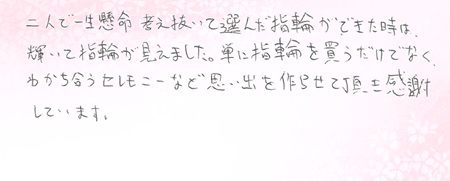 二人で一生懸命 考え抜いて選んだ指輪ができた時は、
輝いて指輪が見えました。単に指輪を買うだけでなく、
わかち合うセレモニーなど思い出を作らせて頂き感謝
しています。